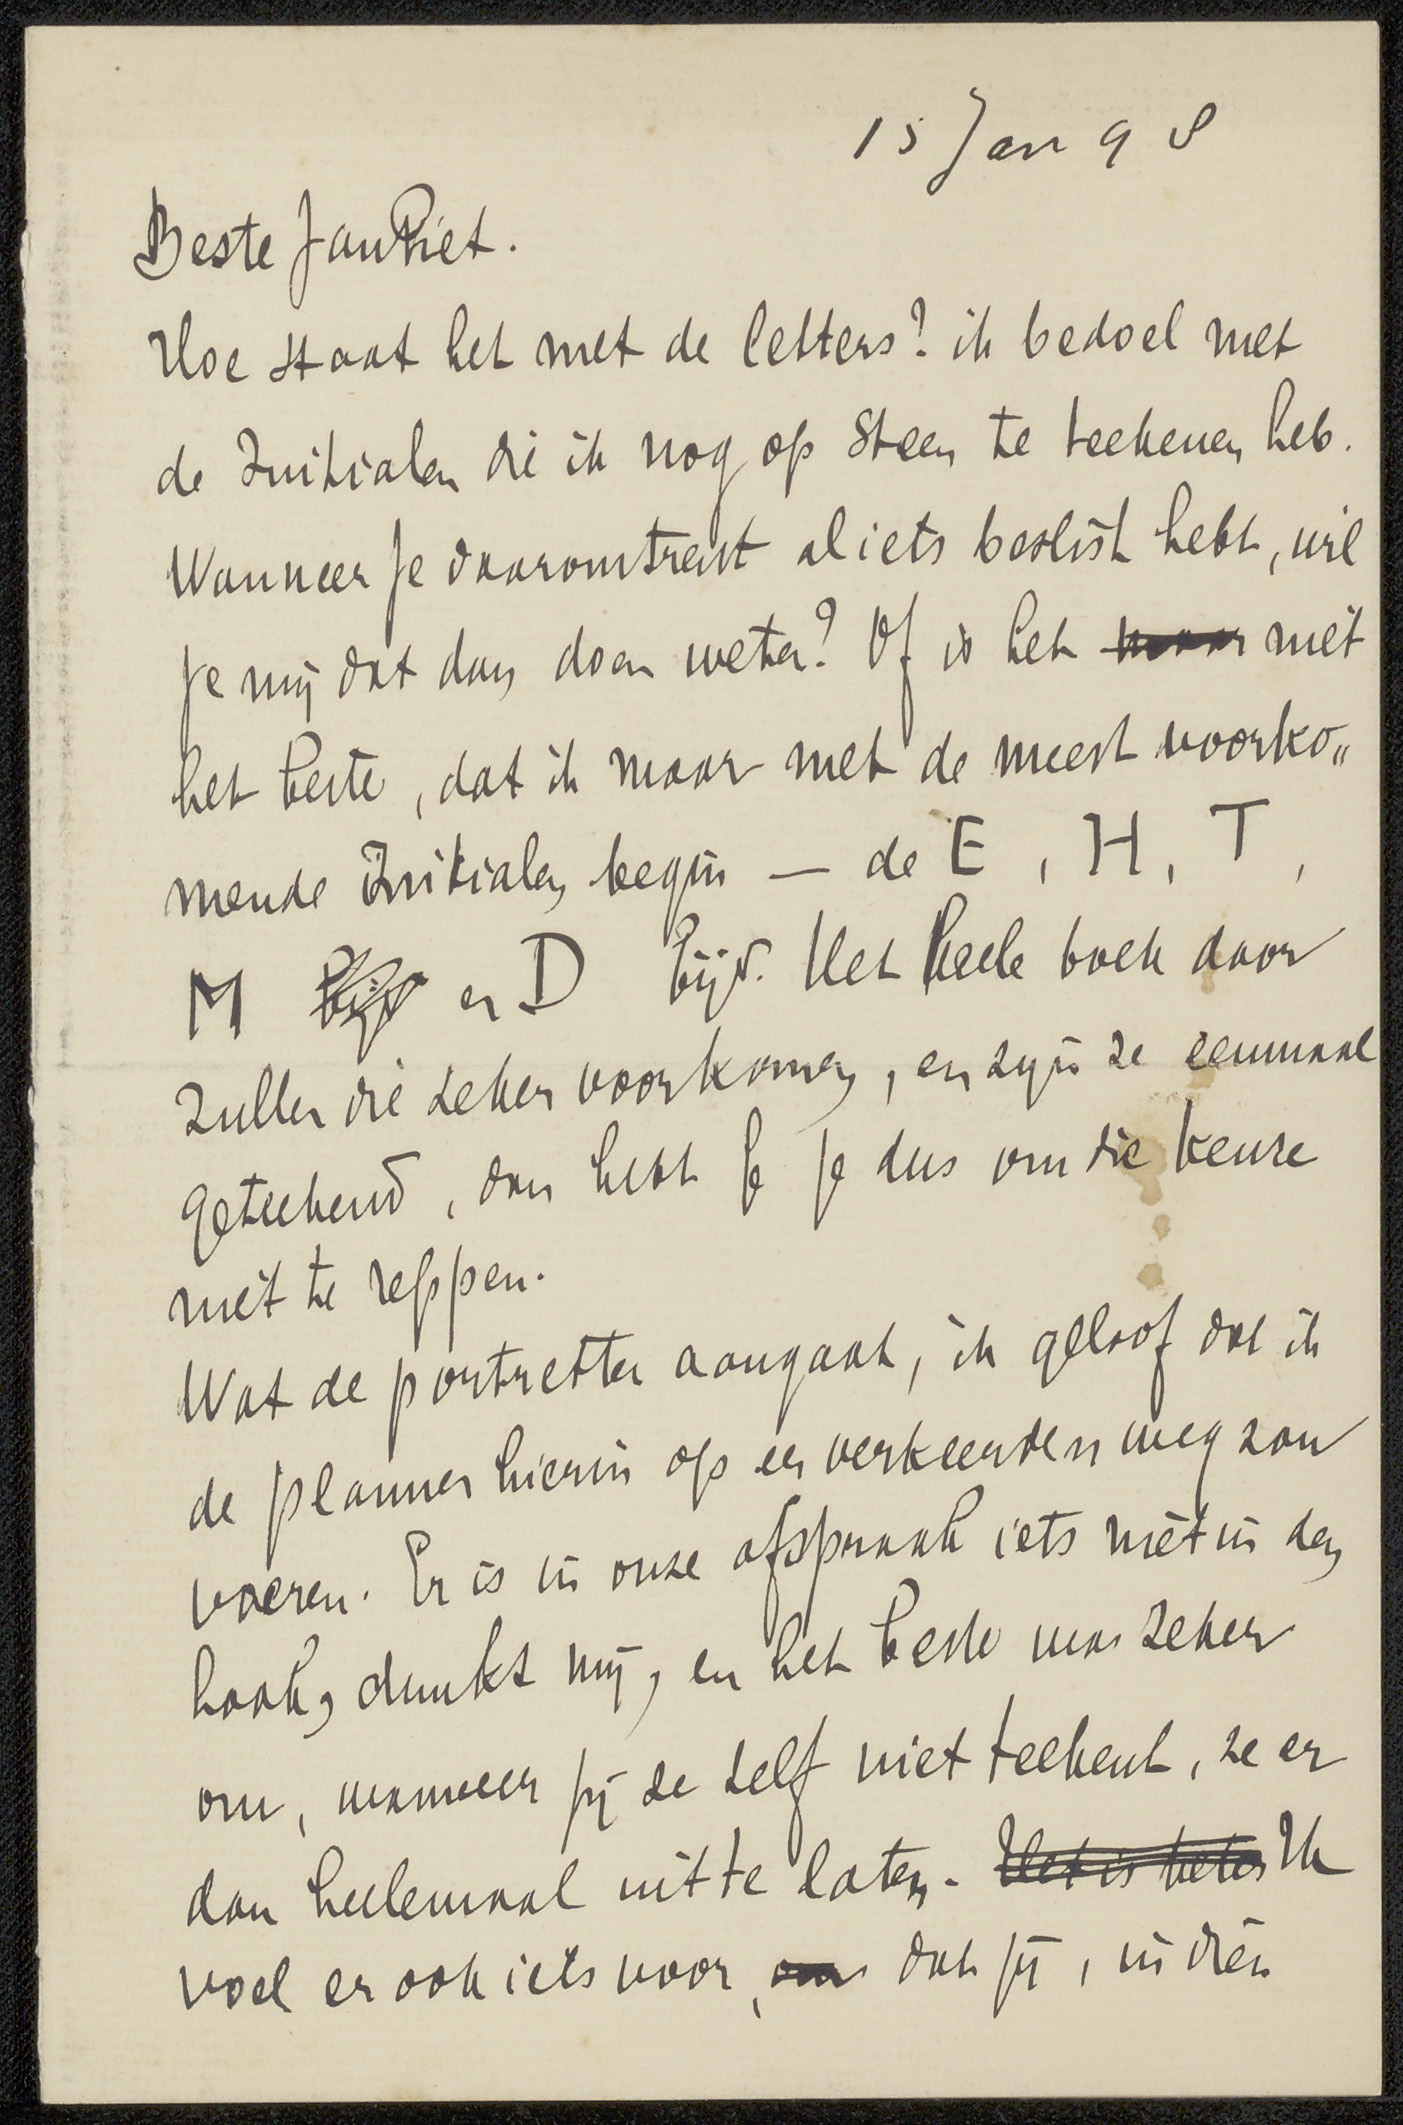 15 Jan 98
Beste JanPiet.
Hoe staat het met de letters? ik bedoel met
de Initialen die ik nog op Steen te teekenen heb.
Wanneer je daaromtrent al iets beslist hebt, wil
je mij dat dan doen weten? Of is het maar niet
het beste, dat ik maar met de meest voorko„
mende Initialen begin — de E, H, T,
M bijv en D bijv. Het heele boek door
zullen die zeker voorkomen, en zijn ze eenmaal
geteekend, dan hebt je je dus om die keuze
niet te reppen.
Wat de portretten aangaat, ik geloof dat ik
de plannen hierin op een verkeerden weg zou
voeren. Er is in onze afspraak iets niet in den
haak, dunkt mij, en het beste was zeker
om, wanneer jij ze zelf niet teekent, ze er
dan heelemaal uit te laten. Het is beter Ik
voel er ook iets voor, om dat jij, indien